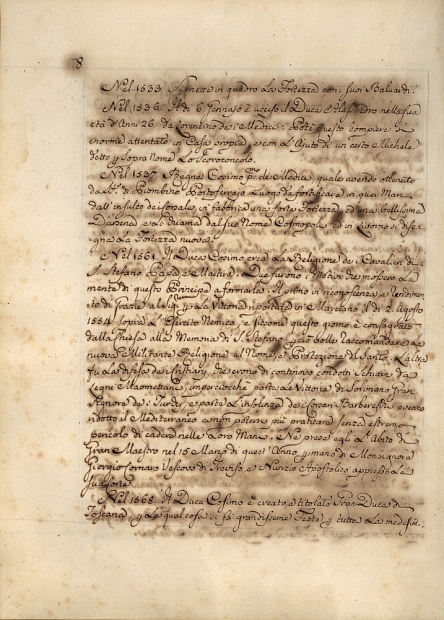 8
Nel 1533 Si mette in quadro La Fortezza con i suoi Baluardi.
Nel 1536. Il di 6 Gennajo è ucciso il Duca Alessandro nella sua
età d'Anni 26 da Lorenzino de i Medici: Potè questo compiere
enorme attentato in Casa propria, e con L'Ajuto di un certo Michele
detto p Sopra Nome Lo Scoronconcolo.
Nel 1537 Regna Cosimo P.º de Medici quale avendo ottenuto
da S.ri di Piombino Portoferrajo Luogo da fortificare in quei Mari
dall'insulto de i fabrica una forte Fortezza, ed una bellissima
Darsena, e Lo chiama dal suo Nome Cosmopoli, ed in Livorno si dise-
gna La Fortezza nuova.
Nel 1561. Il Duca Cosimo crea La Religione de i Cavalieri di
S. Stefano Papa, e Martire: Due furono i Motivi che mossero La
mente di questo Principe a formarla: Il primo in riconoscenza e rendimen-
to di Grazie al p La Vittoria riportata in Marciano Il di 2. Agosto
1554 sopra L'Esercito Nemico, e siccome questo giorno è consagrato
dalla Chiesa alla Memoria di S. Stefano, p ciò volle raccomandare la
nuova Militante Religione al Nome, e Protezione di Santo. L'altro
fu La difesa de i che erono di continovo condotti Schiavi da
Legni Maomettani, imperciocchè parte Le Vittorie di Solimano Gran
Signore de i Turchi, e parte L'insolenza de i Corsari Barbereschi avevano
ridotto il Mediterraneo a non potersi più praticare senza estremo
pericolo di cadere nelle Loro Mani. Ne prese egli L'Abito di
Gran Maestro nel 15 Marzo di quest'Anno p mano di Monsignore
Giorgio Cornaro Vescovo di Treviso e Nunzio Apostolico appresso Le
sue
Nel 1568. Il Duca Cosimo è creato, e titolato Gran Duca di
Toscana, p La qual cosa si fà grandissime Feste p tutta La medesi-